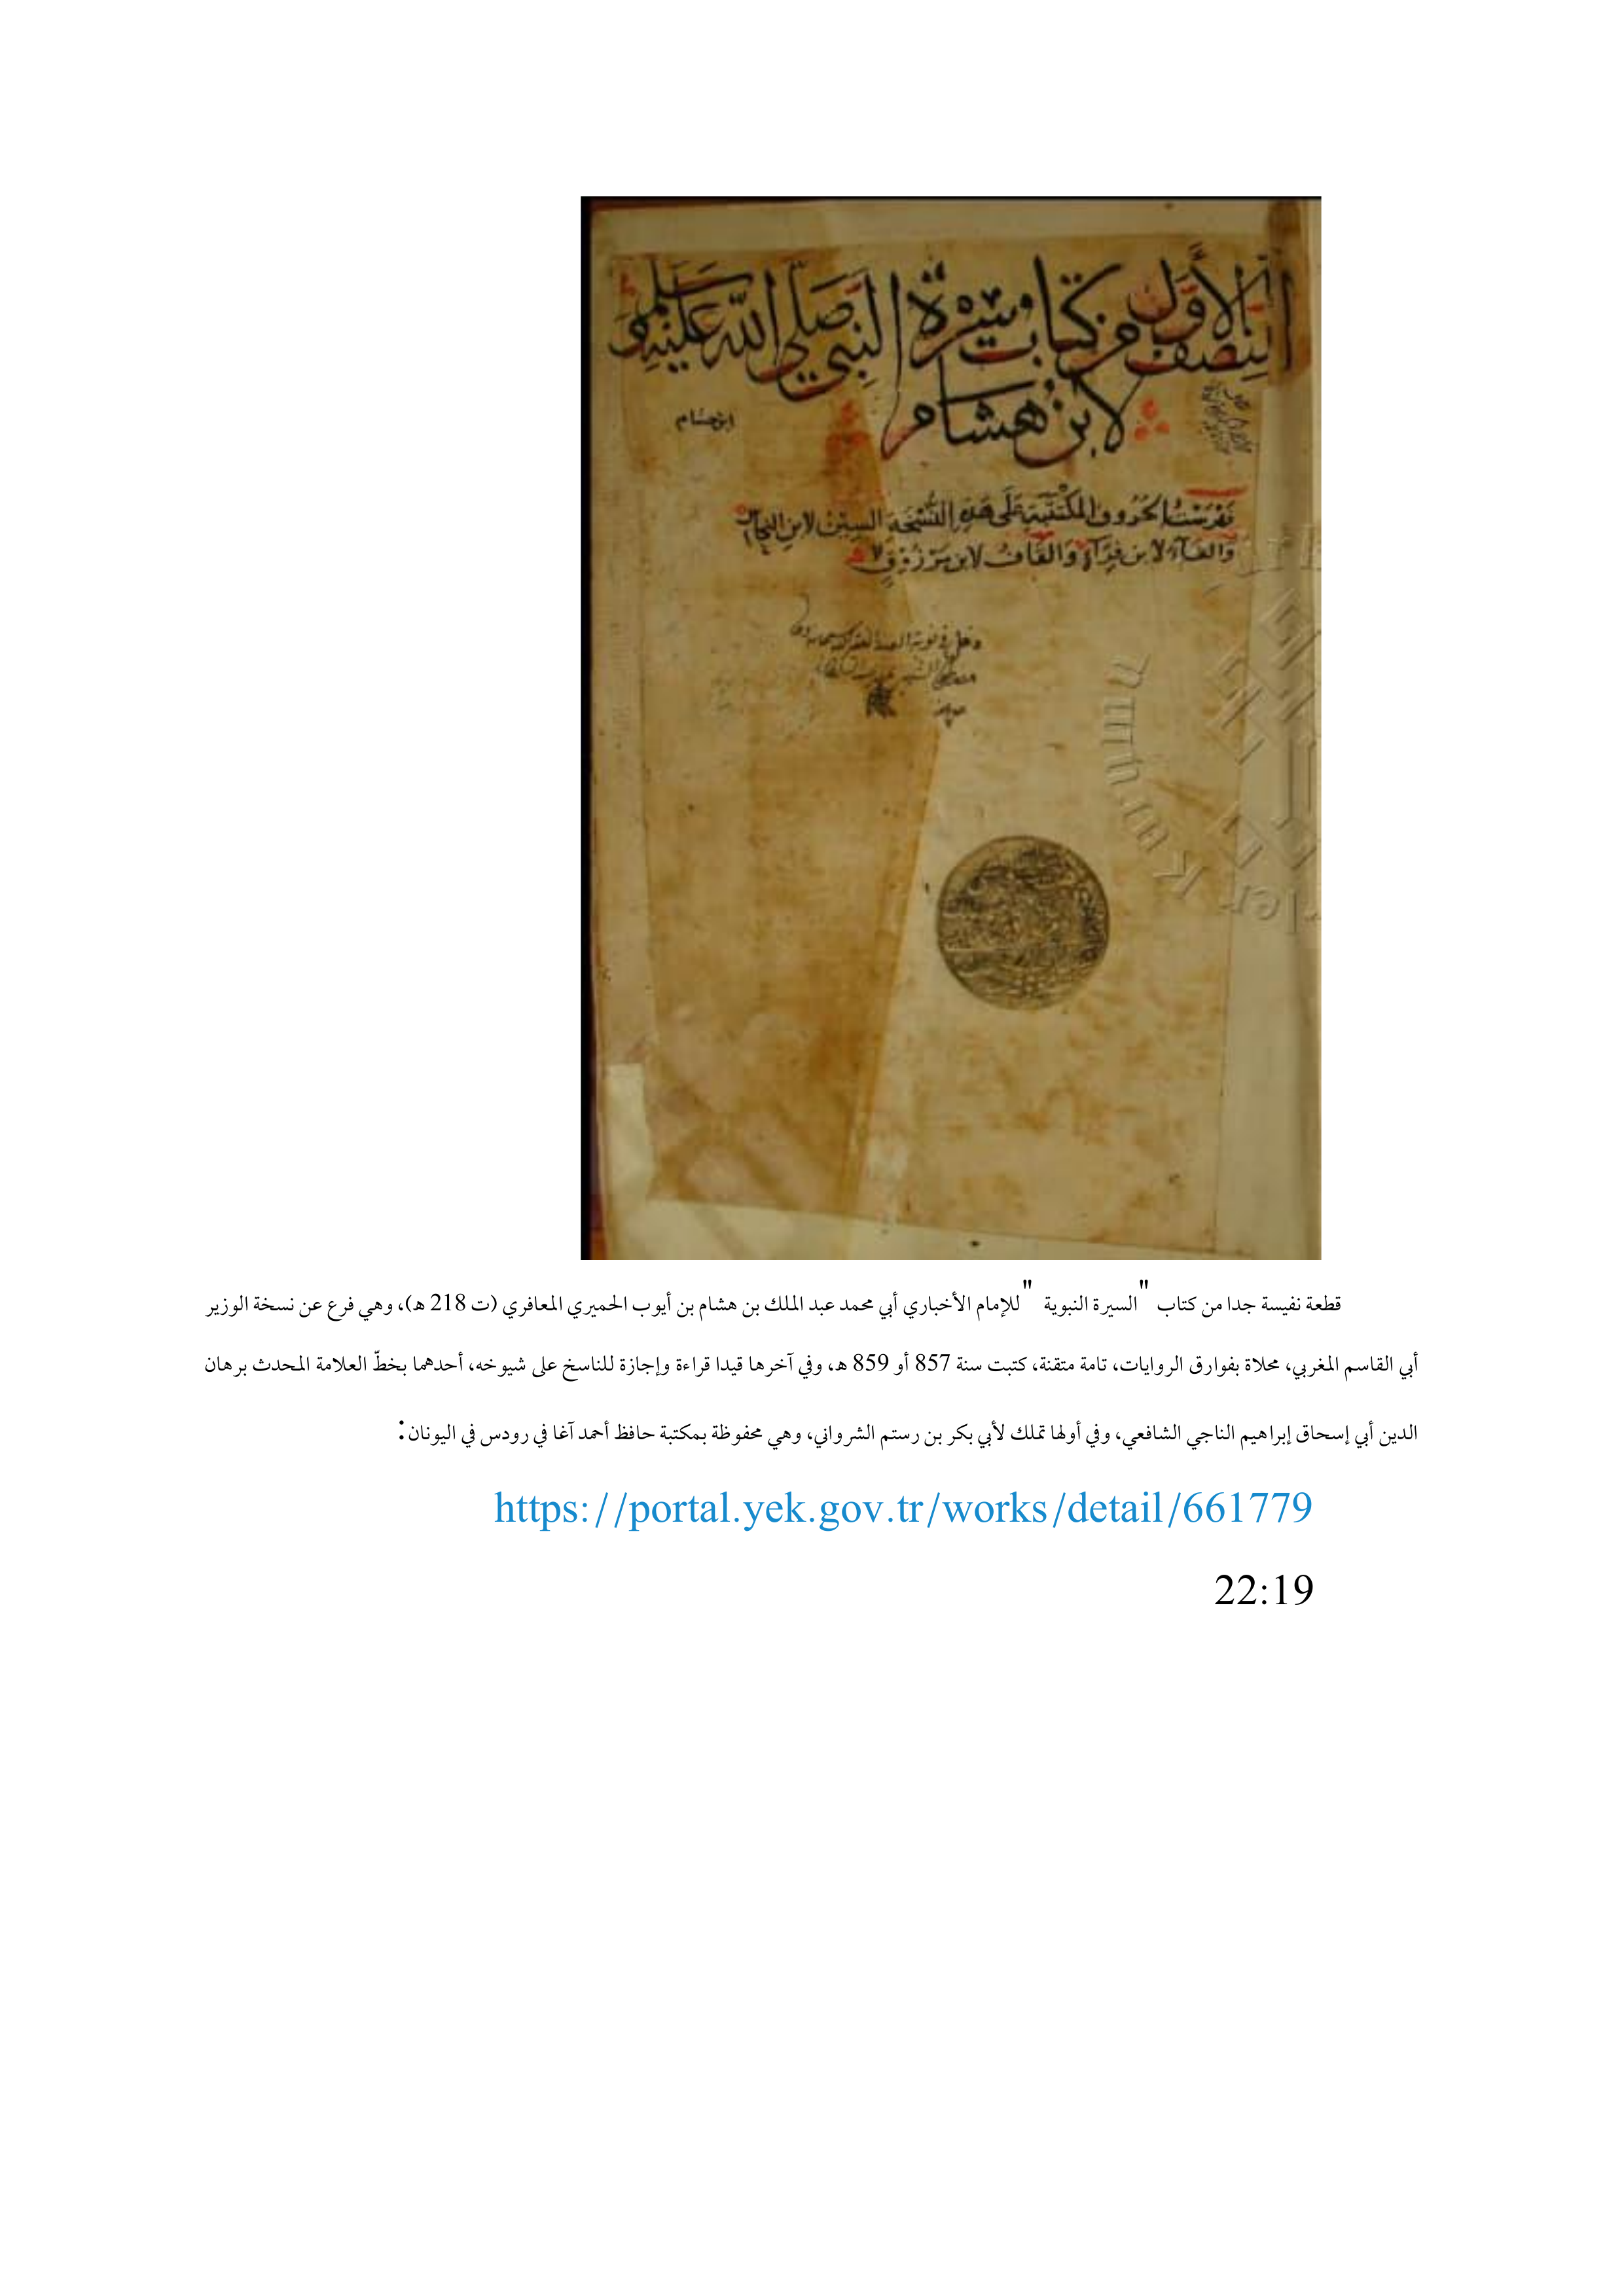 النصف الأول من كتاب سيرة النبي صلى الله عليه وسلم
لابن هشام
ابن هشام
الحروف المكتتبة على هذه النسخة السين لابن النحاس
والفاء لابن فراء والقاف لابن مرزوق
قطعة نفيسة جدا من كتاب "السيرة النبوية "للإمام الأخباري أبي محمد عبد الملك بن هشام بن أيوب الحميري المعافري (ت 218 هـ)، وهي فرع عن نسخة الوزير
أبي القاسم المغربي، محلاة بفوارق الروايات، تامة متقنة، كتبت سنة 857 أو 859 هـ، وفي آخرها قيدا قراءة وإجازة للناسخ على شيوخه، أحدهما بخطّ العلامة المحدث برهان
الدين أبي إسحاق إبراهيم الناجي الشافعي، وفي أولها تملك لأبي بكر بن رستم الشرواني، وهي محفوظة بمكتبة حافظ أحمد آغا في رودس في اليونان:
https://portal.yek.gov.tr/works/detail/661779
22:19